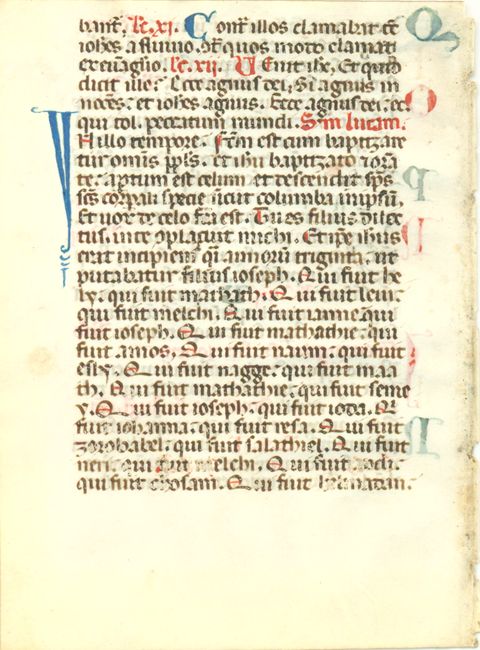 bant. Lc. xi. Cont illos clamabat et
iohes a fluuio. & quos modo clamat
ex euāglio. Lc. xii. Uenit ihc, Et quid
dicit ille: Ecce agnus dei, Si agnus in
nocēs: et iohes agnus. Ecce agnus dei: ec
qui tol. peccatum mundi. Sm lucam.
In illo tempore. Fcm est cum baptizare
tur omīs ppls. et ihu baptizato ⁊ orā
te. aptum est celum et descendit sps
scs corpali specie sicut columba in ipsū,
Et uox de celo fca est. Tu es filius dilec
tus. in te oplacuit michi. Et ipe ihus
erat incipiens qi annorū triginta. ut
putabatur filius ioseph. Qui fuit he
ly: qui fuit mathath. Qui fuit leui:
qui fuit melchi. Qui fuit ianne: qui
fuit ioseph. Qui fuit mathathie: qui
fuit amos, Qui fuit naum: qui fuit
esly. Qui fuit nagge: qui fuit maa
th. Qui fuit mathathie: qui fuit seme
y. Qui fuit ioseph: qui fuit ioda. Qi
fuit iohanna: qui fuit resa. Qui fuit
zorobabel: qui fuit salathiel. Qui fuit
neri: qui fuit melchi. Qui fuit addi:
qui fuit chosam. Qui fuit helmadan: